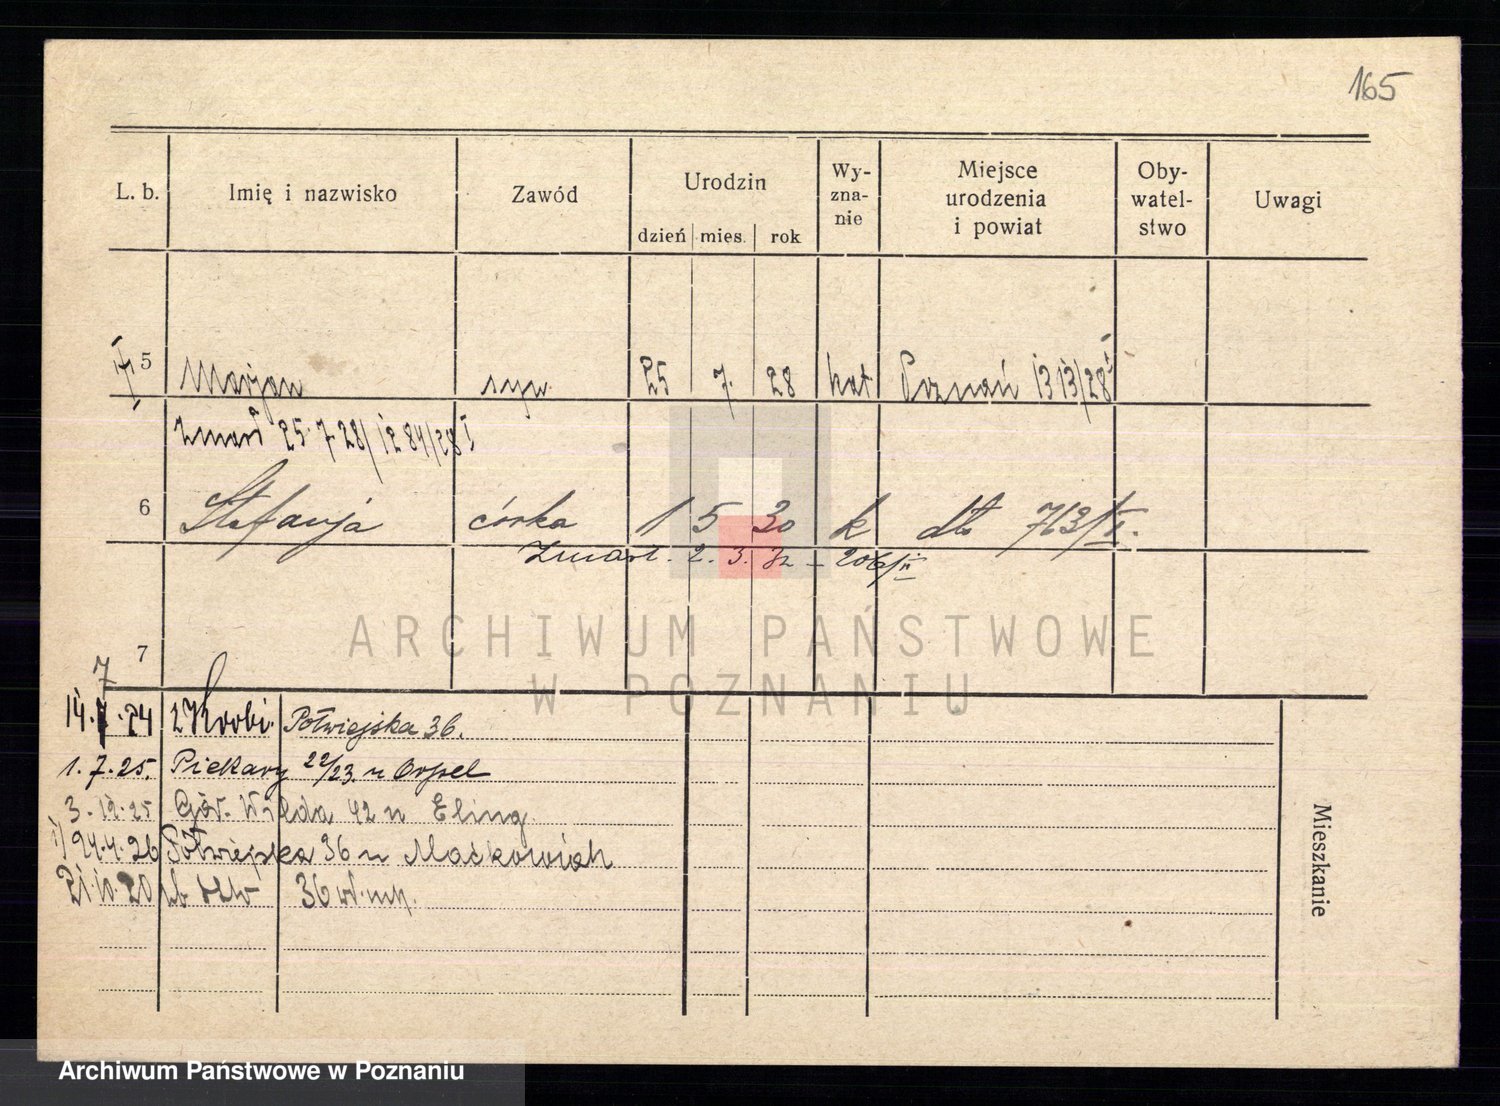 165
L. b. Imię i nazwisko Zawód Urodzin dzień mies. rok Wy-zna-nie Miejsce urodzenia i powiat Oby-watel-stwo Uwagi
5 Marjan syn 25 7. 28 kat Poznań 1313/28 I
zmarł 25.7.28/1284/28 I
6 Stefanja córka 1 5 30 k dto 713/II.
Zmarł. 2. 3. 32 – 206/II
ARCHIWUM PAŃSTWOWE
W POZNANIU
7
14.7.24 z Połwiejska 36.
1.7.25. Piekary 22/23. u Orpel
3.12.25 Gór. Wilda 42 u Eling.
24.4.26 Półwiejska 36 u Maćkowiak
36
Mieszkanie
Archiwum Państwowe w Poznaniu